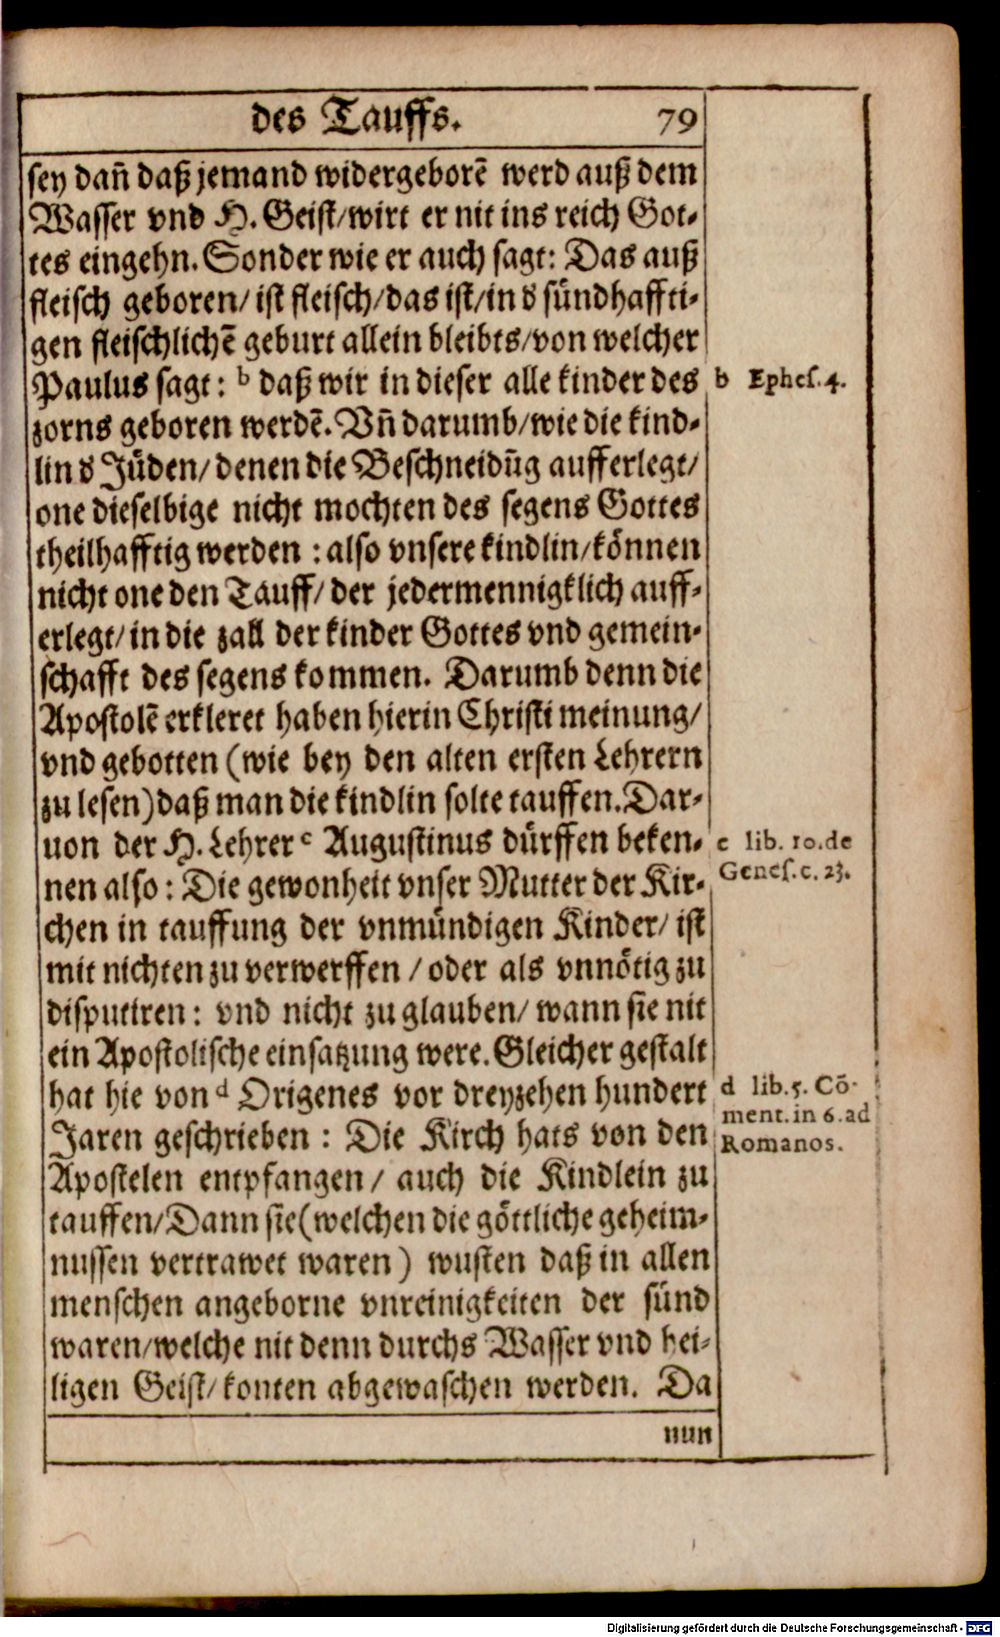 des Tauffs. 79
sey dañ daß jemand widergeborẽ werd auß dem
Wasser vnd H. Geist/wirt er nit ins reich Got-
tes eingehn. Sonder wie er auch sagt: Das auß
fleisch geboren/ ist fleisch/das ist/in d sündhaffti-
gen fleischlichẽ geburt allein bleibts/von welcher
Paulus sagt: b daß wir in dieser alle kinder des
b Ephes. 4.
zorns geboren werdẽ. Vñ darumb/wie die kind-
lin d Jüden/ denen die Beschneidũg aufferlegt/
one dieselbige nicht mochten des segens Gottes
theilhafftig werden : also vnsere kindlin/können
nicht one den Tauff/ der jedermennigklich auff-
erlegt/in die zall der kinder Gottes vnd gemein-
schafft des segens kommen. Darumb denn die
Apostolẽ erkleret haben hierin Christi meinung/
vnd gebotten (wie bey den alten ersten Lehrern
zu lesen) daß man die kindlin solte tauffen. Dar-
uon der H. Lehrer c Augustinus dürffen beken-
c lib. 10. de
Genes. c. 23.
nen also : Die gewonheit vnser Mutter der Kir-
chen in tauffung der vnmündigen Kinder/ ist
mit nichten zu verwerffen / oder als vnnötig zu
disputiren: vnd nicht zu glauben/ wann sie nit
ein Apostolische einsatzung were. Gleicher gestalt
hat hie von d Origenes vor dreyzehen hundert
d lib. 5. Cõ-
ment. in 6. ad
Romanos.
Jaren geschrieben : Die Kirch hats von den
Apostelen entpfangen/ auch die Kindlein zu
tauffen/Dann sie (welchen die göttliche geheim-
nussen vertrawet waren) wusten daß in allen
menschen angeborne vnreinigkeiten der sünd
waren/welche nit denn durchs Wasser vnd hei-
ligen Geist/ konten abgewaschen werden. Da
nun
Digitalisierung gefördert durch die Deutsche Forschungsgemeinschaft - DFG